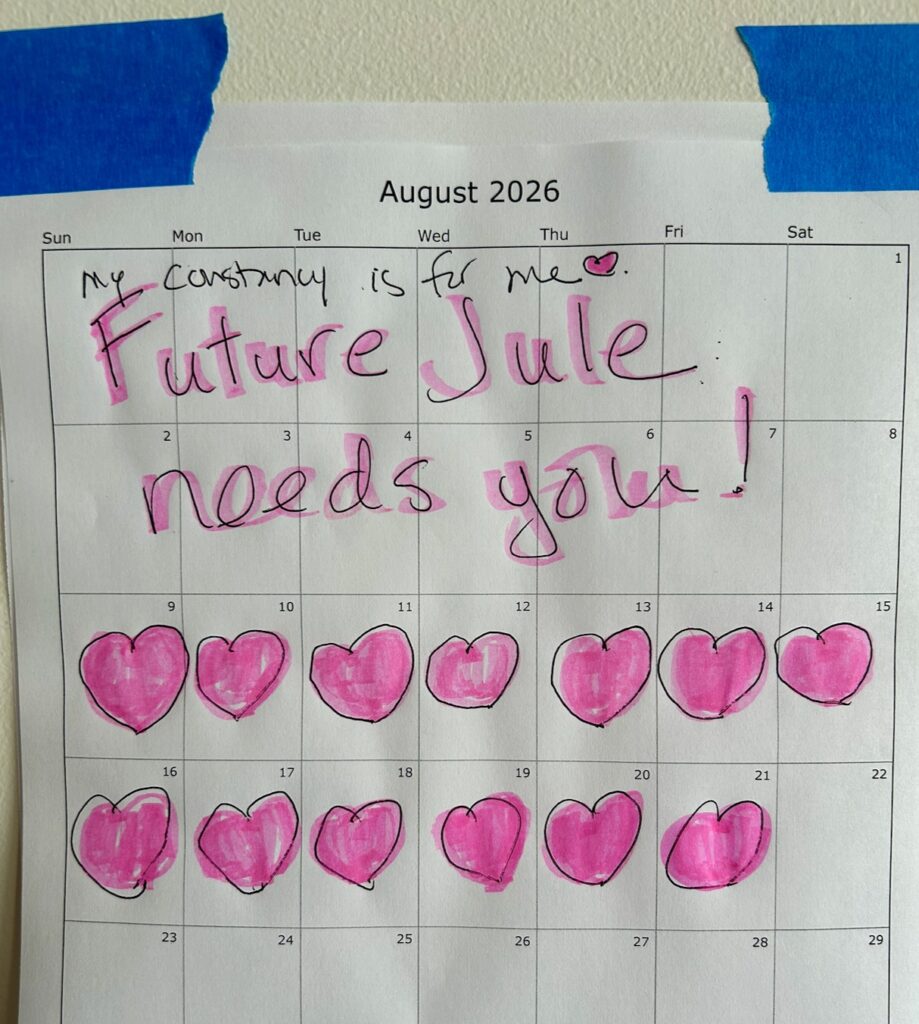 August 2026
Sun Mon Tue Wed Thu Fri Sat
1
my constancy is for me.
Future Jule
2 3 4 5 6 7 8
needs you!
9 10 11 12 13 14 15
16 17 18 19 20 21 22
23 24 25 26 27 28 29